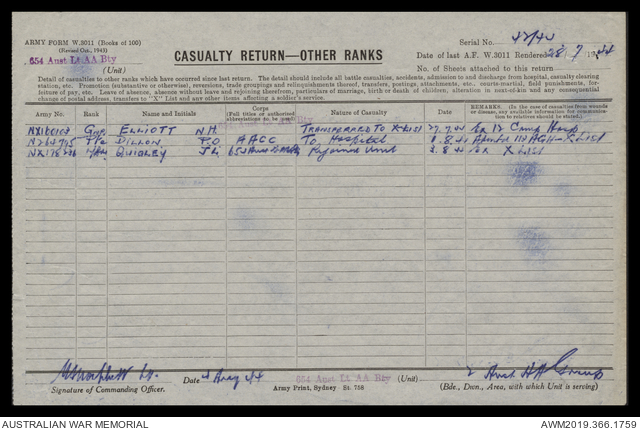 ARMY FORM W.3011 (Books of 100)
(Revised Oct., 1943)
Serial No. 42/44
654 Aust Lt AA Bty
(Unit)
CASUALTY RETURN—OTHER RANKS
Date of last A.F. W.3011 Rendered 28 7 1944
No. of Sheets attached to this return
Detail of casualties to other ranks which have occurred since last return. The detail should include all battle casualties, accidents, admission to and discharge from hospital, casualty clearing
station, etc. Promotion (substantive or otherwise), reversions, trade groupings and relinquishments thereof, transfers, postings, attachments, etc., courts-martial, field punishments, for-
feiture of pay, etc. Leave of absence, absence without leave and rejoining therefrom, particulars of marriage, birth or death of children, alteration in next-of-kin and any consequent
change of postal address, transfers to "X" List and any other items affecting a soldier's service.
Army No. Rank Name and Initials Corps (Full titles or authorized abbreviations to be used) Nature of Casualty Date REMARKS. (In the case of casualties from wounds or disease, any available information for communication to relatives should be stated.)
Gnr ELLIOTT N.H. TRANSFERRED TO X LIST 27.7.44 12 Camp Hosp
DILLON P.O AACC To Hospital 1.8.44 X List
QUIGLEY Rejoined Unit 3.8.44 X LIST
Lt.
Signature of Commanding Officer.
Date 4 Aug 44
654 Aust Lt AA Bty (Unit)
Army Print, Sydney St. 758
2 Aust AA Group
(Bde., Dvn., Area, with which Unit is serving)
AUSTRALIAN WAR MEMORIAL
AWM2019.366.1759